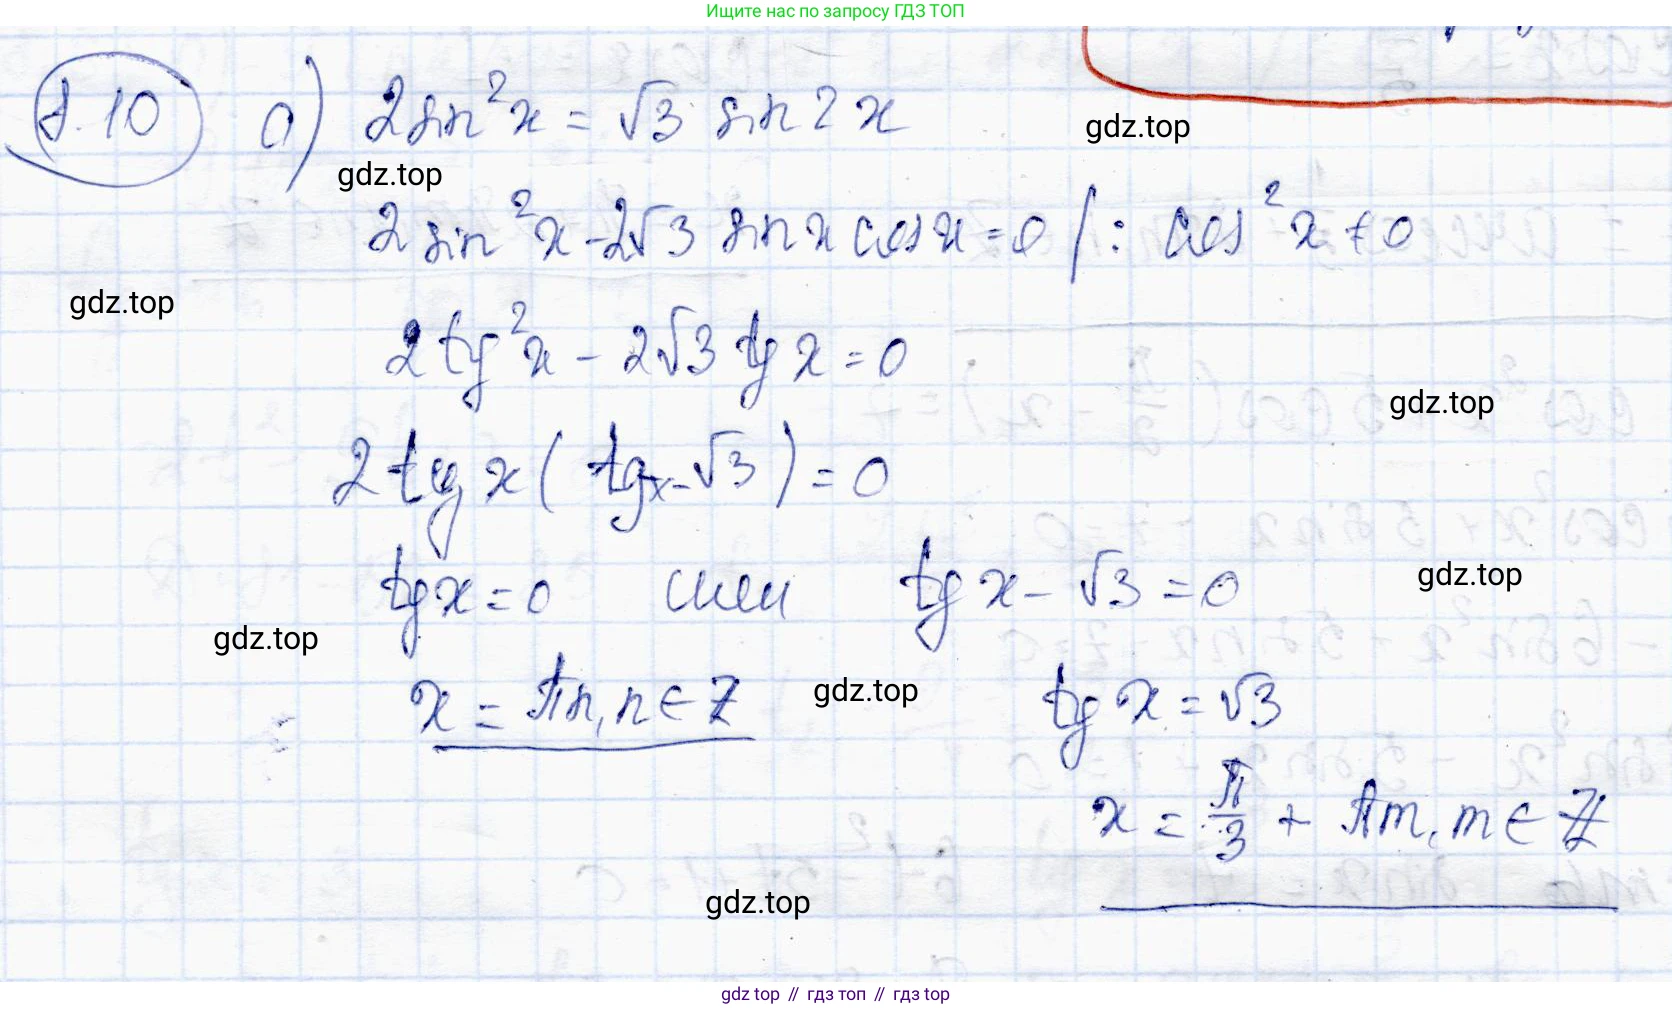 Ищите нас по запросу ГДЗ ТОП
8.10 а) 2sin²x = √3 sin2x
gdz.top
gdz.top
2sin²x - 2√3 sinx cosx = 0 /: cos²x ≠ 0
gdz.top
2tg²x - 2√3 tgx = 0
gdz.top
2tgx(tgx - √3) = 0
tgx = 0 или tgx - √3 = 0
gdz.top
gdz.top
x = πn, n ∈ Z
gdz.top
tgx = √3
x = π/3 + πm, m ∈ Z
gdz.top
gdz top // гдз топ // гдз top